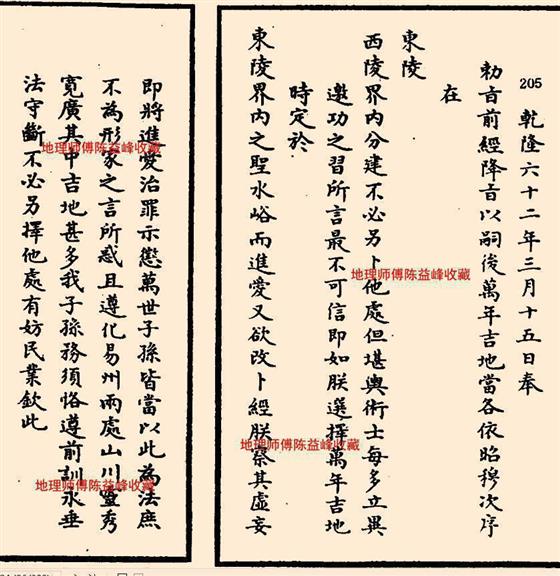 205 乾隆六十二年三月十五日奉
勅旨前經降旨以嗣後萬年吉地當各依昭穆次序
在
東陵
西陵界内分建不必另卜他處但堪輿術士每多立異
邀功之習所言最不可信即如朕選擇萬年吉地
時定於
東陵界内之聖水峪而進愛又欲改卜經朕察其虛妄
即將進愛治罪示懲萬世子孫皆當以此為法庶
不為形家之言所惑且遵化易州兩處山川靈秀
寬廣其中吉地甚多我子孫務須恪遵前訓永垂
法守斷不必另擇他處有妨民業欽此
地理师傅陈益峰收藏
地理师傅陈益峰收藏
地理师傅陈益峰收藏
地理师傅陈益峰收藏